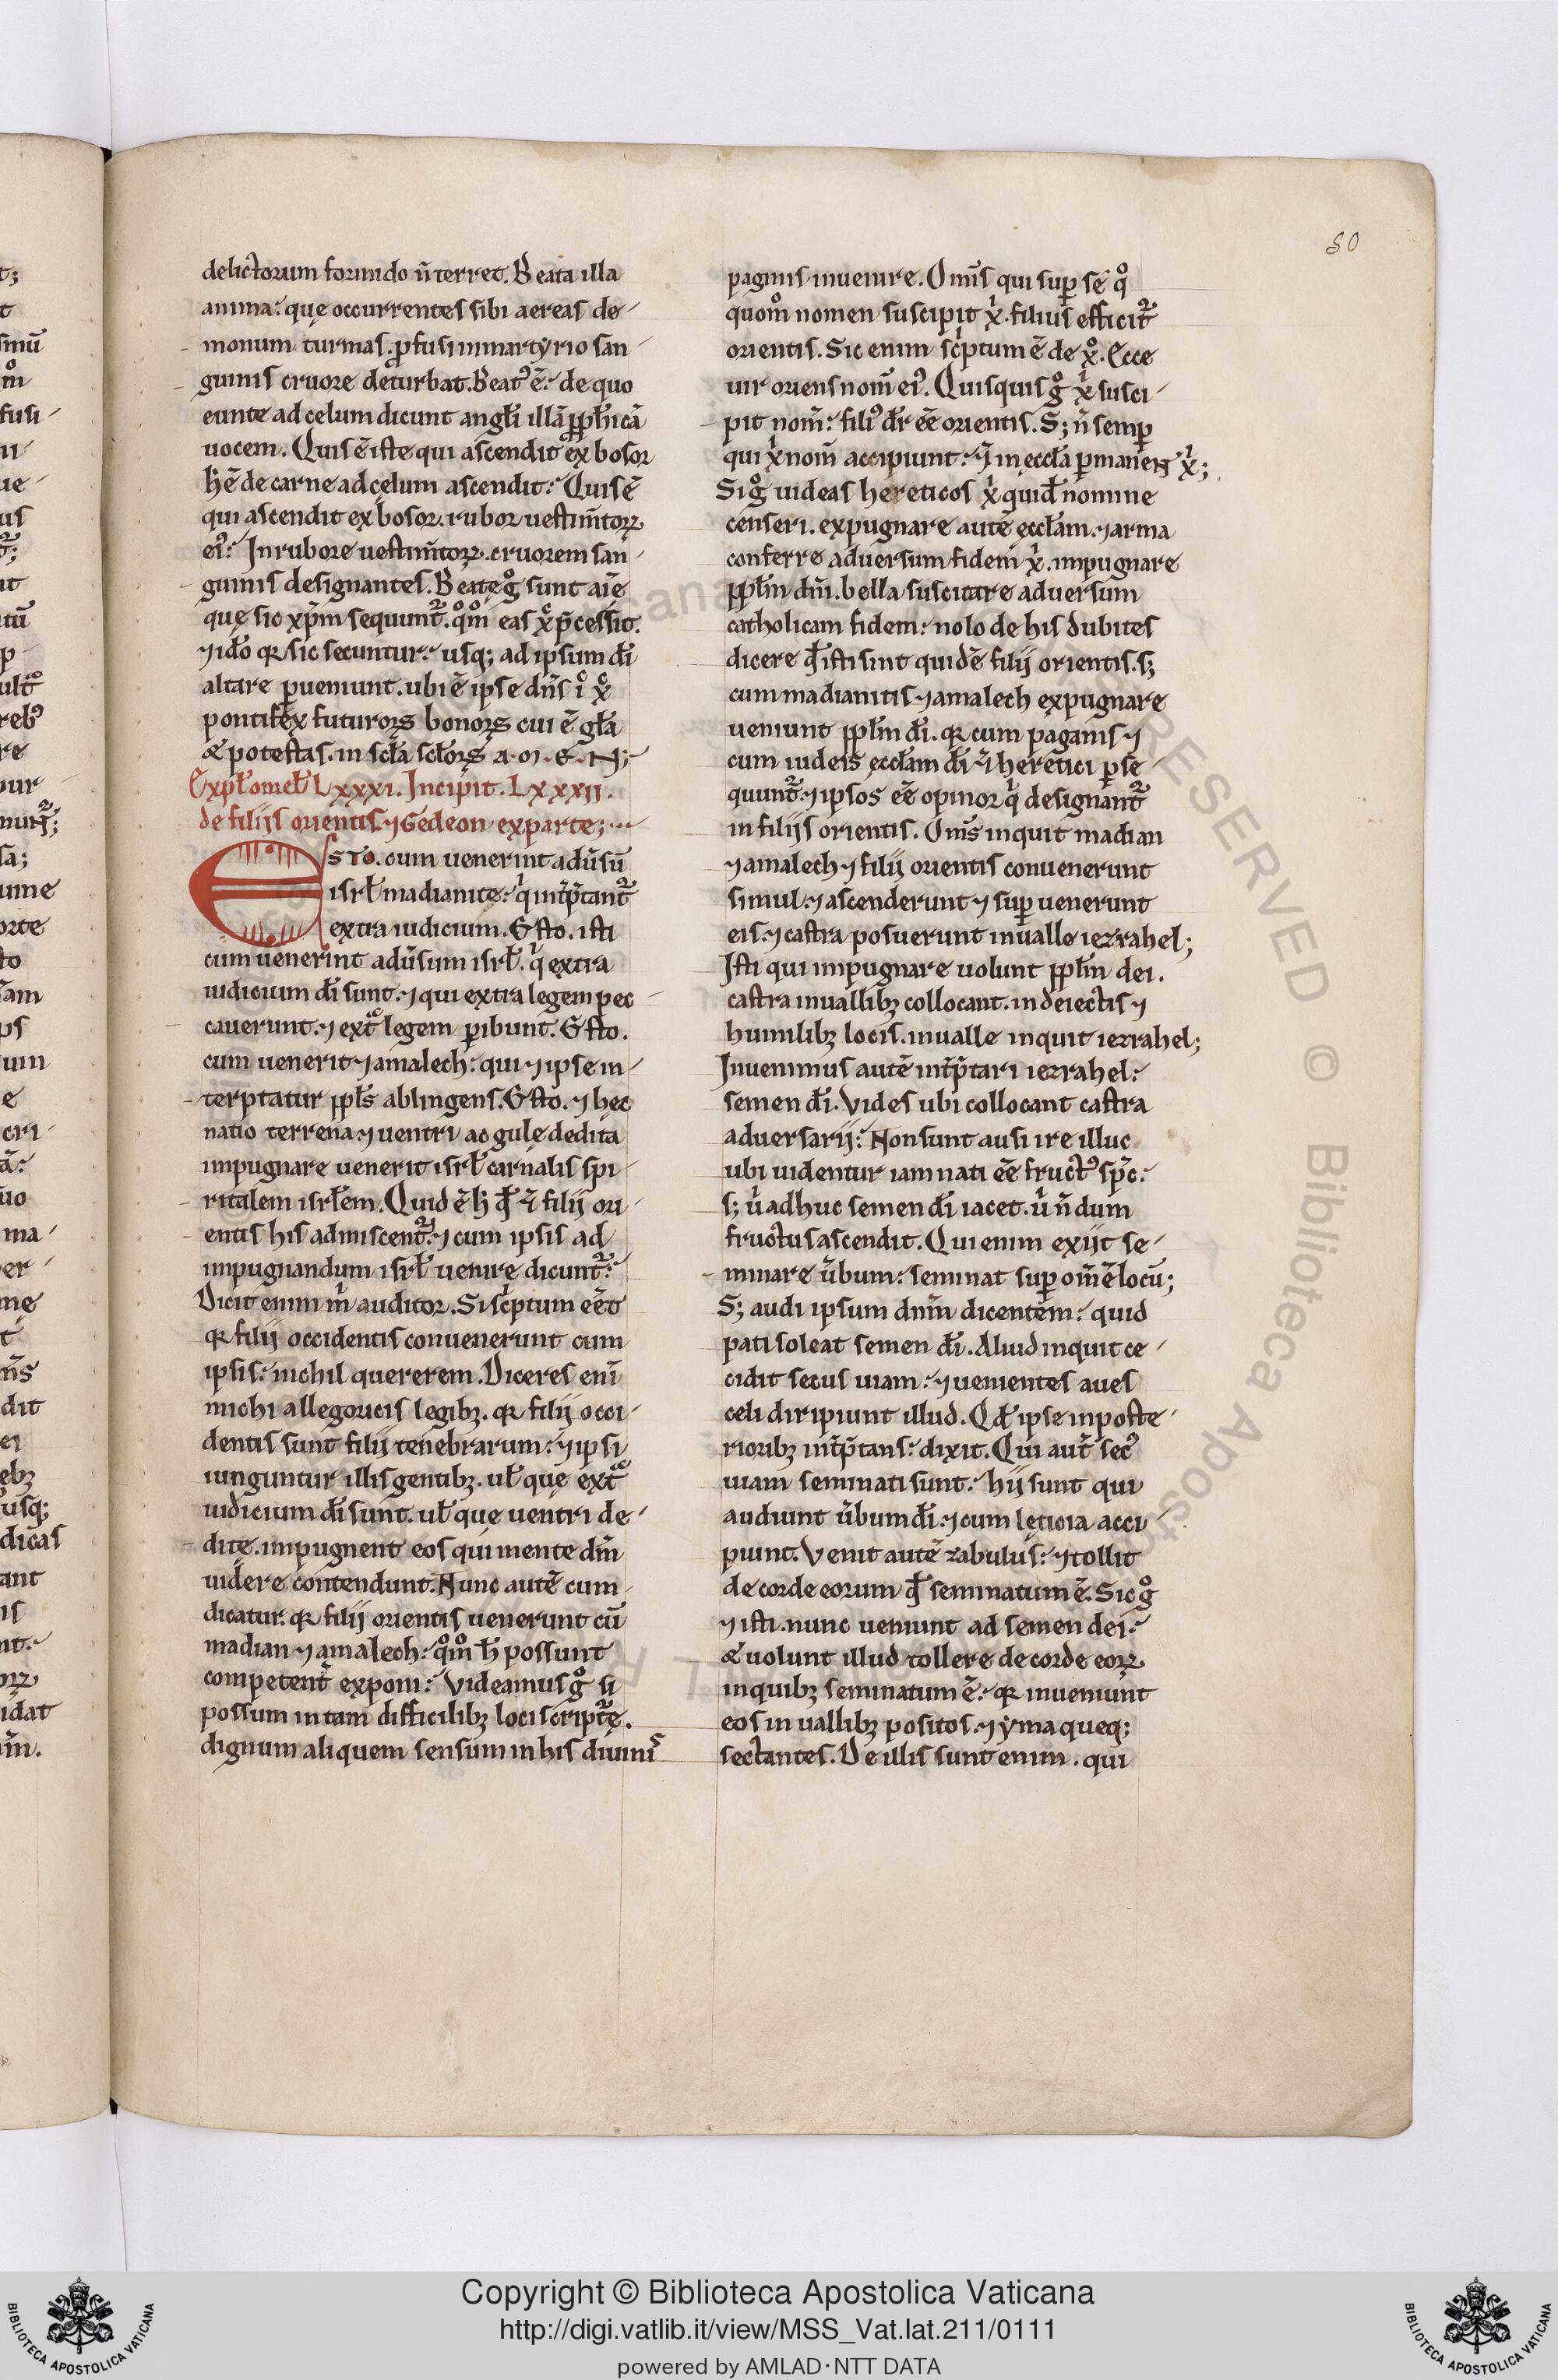 50
delictorum formido n̄ terret. Beata illa
anima: quę occurrentes sibi aereas de-
monum turmas. ꝓfusi inmartyrio san-
guinis cruore deturbat. Beatꝰ ē: de quo
eunte ad celum dicunt angł̄i illā ꝓpħicā
uocem. Quis ē iste qui ascendit ex bosor
h̄ ē de carne ad cęlum ascendit: Quis ē
qui ascendit ex bosor. rubor uestim̄torꝝ
eiꝰ: In rubore uestim̄torꝝ. cruorem san-
guinis designantes. Beatę gͦ sunt aīe
quę sic xp̄m sequunt᷑. qͦmͦ eas xͨ p̄cessit.
⁊ ido qꝛ sic secuntur: usq; ad ipsum dī
altare ꝑueniunt. ubi ē ipse dn̄s iͨ xͨ
pontifex futurorꝝ bonorꝝ cui ē gła
& potestas. in scła scłorꝝ a.m.e.n;
Expł omeł Lxxxi. Incipit. Lxxxii.
de filijs orientis ⁊ Gedeon exparte;
Esto. cum uenerint adūsū
isrł madianite: qⁱ int̄p̄tant᷑
extra iudicium. Esto. isti
cum uenerint adūsum isrł. qⁱ extra
iudicium dī sunt. ⁊ qui extra legem pec-
cauerunt. ⁊ ext̄ legem ꝑibunt. Esto.
cum uenerit ⁊ amalech: qui ⁊ ipse in-
terptatur ppłs ablingens. Esto. ⁊ hec
natio terrena ⁊ uentri ac gulę dedita
impugnare uenerit isrł carnalis spi-
ritalem isrłem. Quid ē h̄ qđ ⁊ filij ori-
entis his admiscent᷑. ⁊ cum ipsis ad
impugnandum isrł uenire dicunt᷑:
Dicit enim mⁱ auditor. Si scⁱptum eēt
qꝛ filij occidentis conuenerunt cum
ipsis: nichil quererem. Diceres enī
michi allegoricis legibꝫ. qꝛ filij occi-
dentis sunt filij tenebrarum: ⁊ ipsi
iunguntur illis gentibꝫ. uł quę ext̄
iudicium dī sunt. uł quę uentri de-
ditę. impugnent eos qui mente dm̄
uidere contendunt. Nunc autē cum
dicatur qꝛ filij orientis uenerunt cū
madian ⁊ amalech: qͦmͦ h̄ possunt
competent᷑ exponi: Videamus gͦ si
possum in tam difficilibꝫ loci scriptᷓę.
dignum aliquem sensum in his diuinis
paginis inuenire. Omīs qui suꝑ se qͦ
quomͦ nomen suscipit xⁱ. filius efficit᷑
orientis. Sic enim scⁱptum ē de xͦ. Ecce
uir oriens nom̄ eiꝰ. Quisquis gͦ xⁱ susci-
pit nom̄: filiꝰ dr̄ eē orientis. S; n̄ semꝑ
qui xⁱ nom̄ accipiunt: ⁊ in eccła ꝑmanent xⁱ;
Si gͦ uideas hereticos xⁱ quidē nomine
censeri. expugnare autē eccłam. ⁊ arma
conferre aduersum fidem xⁱ. impugnare
ppłm dn̄i. bella suscitare aduersum
catholicam fidem: nolo de his dubites
dicere qđ isti sint quidē filij orientis. s;
cum madianitis ⁊ amalech expugnare
ueniunt ppłm dī. qꝛ cum paganis ⁊
cum iudeis eccłam dī ⁊ heretici ꝑse-
quunt᷑. ⁊ ipsos eē opinor qⁱ designant᷑
in filijs orientis. Om̄s inquit madian
⁊ amalech ⁊ filij orientis conuenerunt
simul. ⁊ ascenderunt ⁊ suꝑ uenerunt
eis. ⁊ castra posuerunt in ualle iezrahel;
Isti qui impugnare uolunt ppłm dei.
castra in uallibꝫ collocant. in deiectis ⁊
humilibꝫ locis. in ualle inquit iezrahel;
Inuenimus autē int̄p̄tari iezrahel:
semen dī. Vides ubi collocant castra
aduersarij: Non sunt ausi ire illuc
ubi uidentur iam nati eē fructꝰ spc̄:
s; uⁱ adhuc semen dī iacet. uⁱ n̄ dum
fructus ascendit. Qui enim exijt se-
minare ūbum: seminat suꝑ om̄ē locū;
S; audi ipsum dnm̄ dicentem: quid
pati soleat semen dī. Aliud inquit ce-
cidit secus uiam: ⁊ uenientes aues
celi diripiunt illud. Qđ ipse in poste-
rioribꝫ int̄p̄tans: dixit. Qui aut̄ secꝰ
uiam seminati sunt: hij sunt qui
audiunt ūbum dī. ⁊ cum lęticia acci-
piunt. Venit autē zabulus: ⁊ tollit
de corde eorum qđ seminatum ē. Sic gͦ
⁊ isti. nunc ueniunt ad semen dei:
& uolunt illud tollere de corde eorꝝ
in quibꝫ seminatum ē: qꝛ inueniunt
eos in uallibꝫ positos. ⁊ yma queq;
sectantes. De illis sunt enim. qui
Copyright © Biblioteca Apostolica Vaticana
http://digi.vatlib.it/view/MSS_Vat.lat.211/0111
powered by AMLAD·NTT DATA